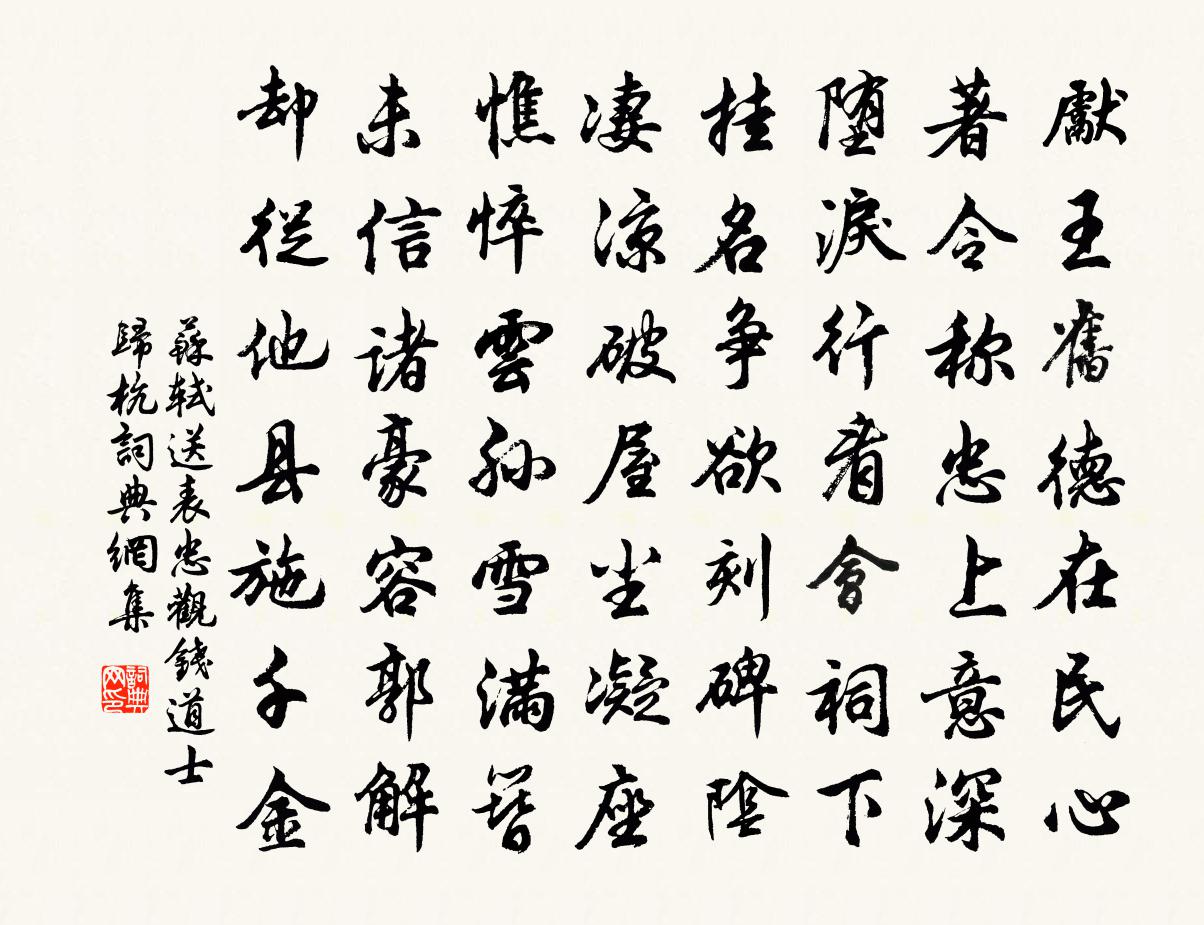 獻王舊德在民心
著令称忠上意深
堕淚行看會祠下
挂名争欲刻碑陰
凄凉破屋尘凝座
憔悴雲孙雪满簪
未信诸豪容郭解
却從他县施千金
蘇轼送表忠觀錢道士
歸杭詞典網集
詞典网印